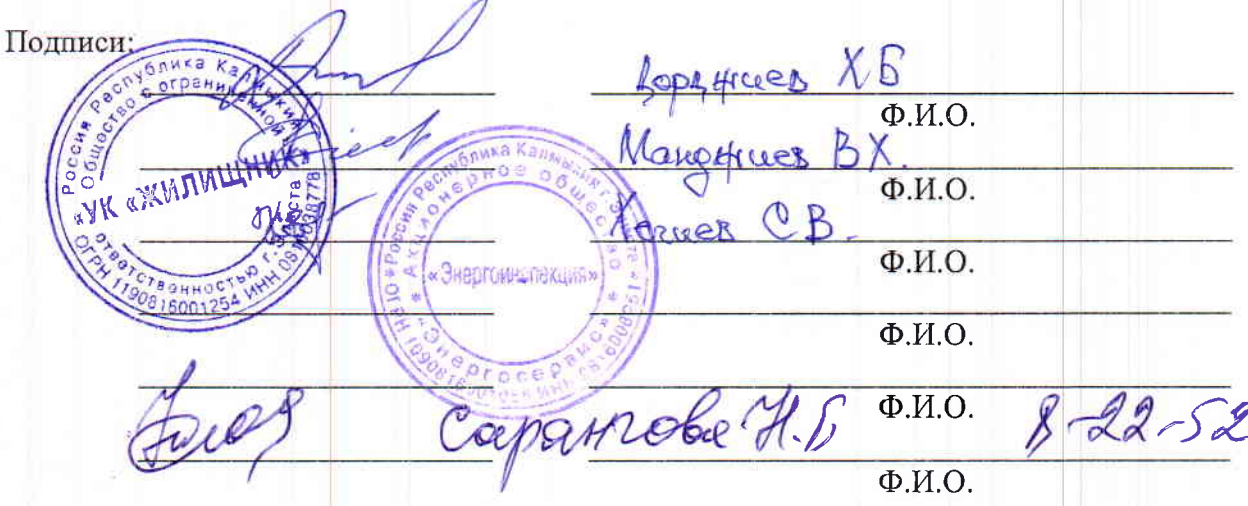 Подписи:
Дорджиев Х Б
Ф.И.О.
Манджиев В Х.
Ф.И.О.
С В.
Ф.И.О.
Ф.И.О.
Сарангова Н.Б
Ф.И.О.
8-22-52
Ф.И.О.
Россия Республика Калмыкия г. Элиста
Общество с ограниченной ответственностью
«УК «ЖИЛИЩНИК»
ОГРН 1190816001254 ИНН
Россия Республика Калмыкия г. Элиста
Акционерное общество
«Энергоинспекция»
«Энергосервис»
ОГРН
ИНН